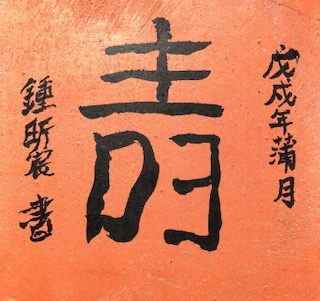 戊戌年蒲月
鍾昕宸書